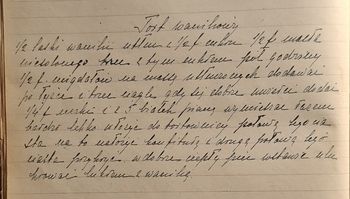 Tort waniliowy
½ laski wanilii utłuc z ½ f cukru ½ f masła
niesolonego trzeć z tym cukrem pół godziny
½ f. migdałów na massę utłuczonych dodawać
po łyżce i trzeć ciągle gdy się dobrze umiesi dodać
¼ f mąki i z 5 białek pianę wymieszać razem
bardzo lekko włożyć do tortownicy połowę tego na
sta na to nałożyć konfiturę i drugą połową tego
ciasta przykryć w dobrze ciepły piec wstawić ulu
krować lukrem z wanilią